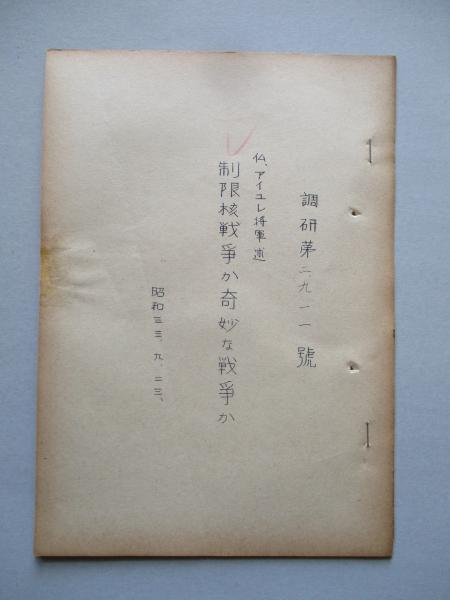 調研第二九一一號
仏、アイユレ将軍述
制限核戦爭か奇妙な戦爭か
昭和三三、九、二三、